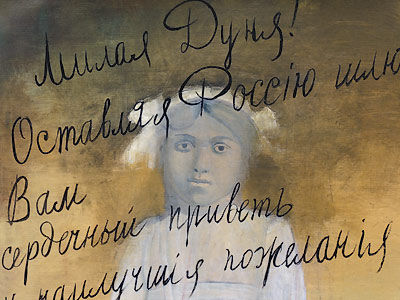 Милая Дуня!
Оставляя Россію шлю
Вам
сердечный приветь
и наилучшія пожеланія